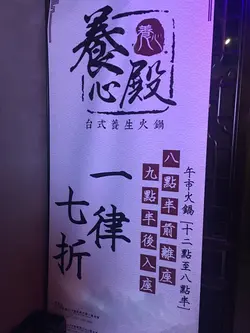 養心
養心殿
台式養生火鍋
午市火鍋[十二點至八點半]
八點半前離座
九點半後入座
一律
七折